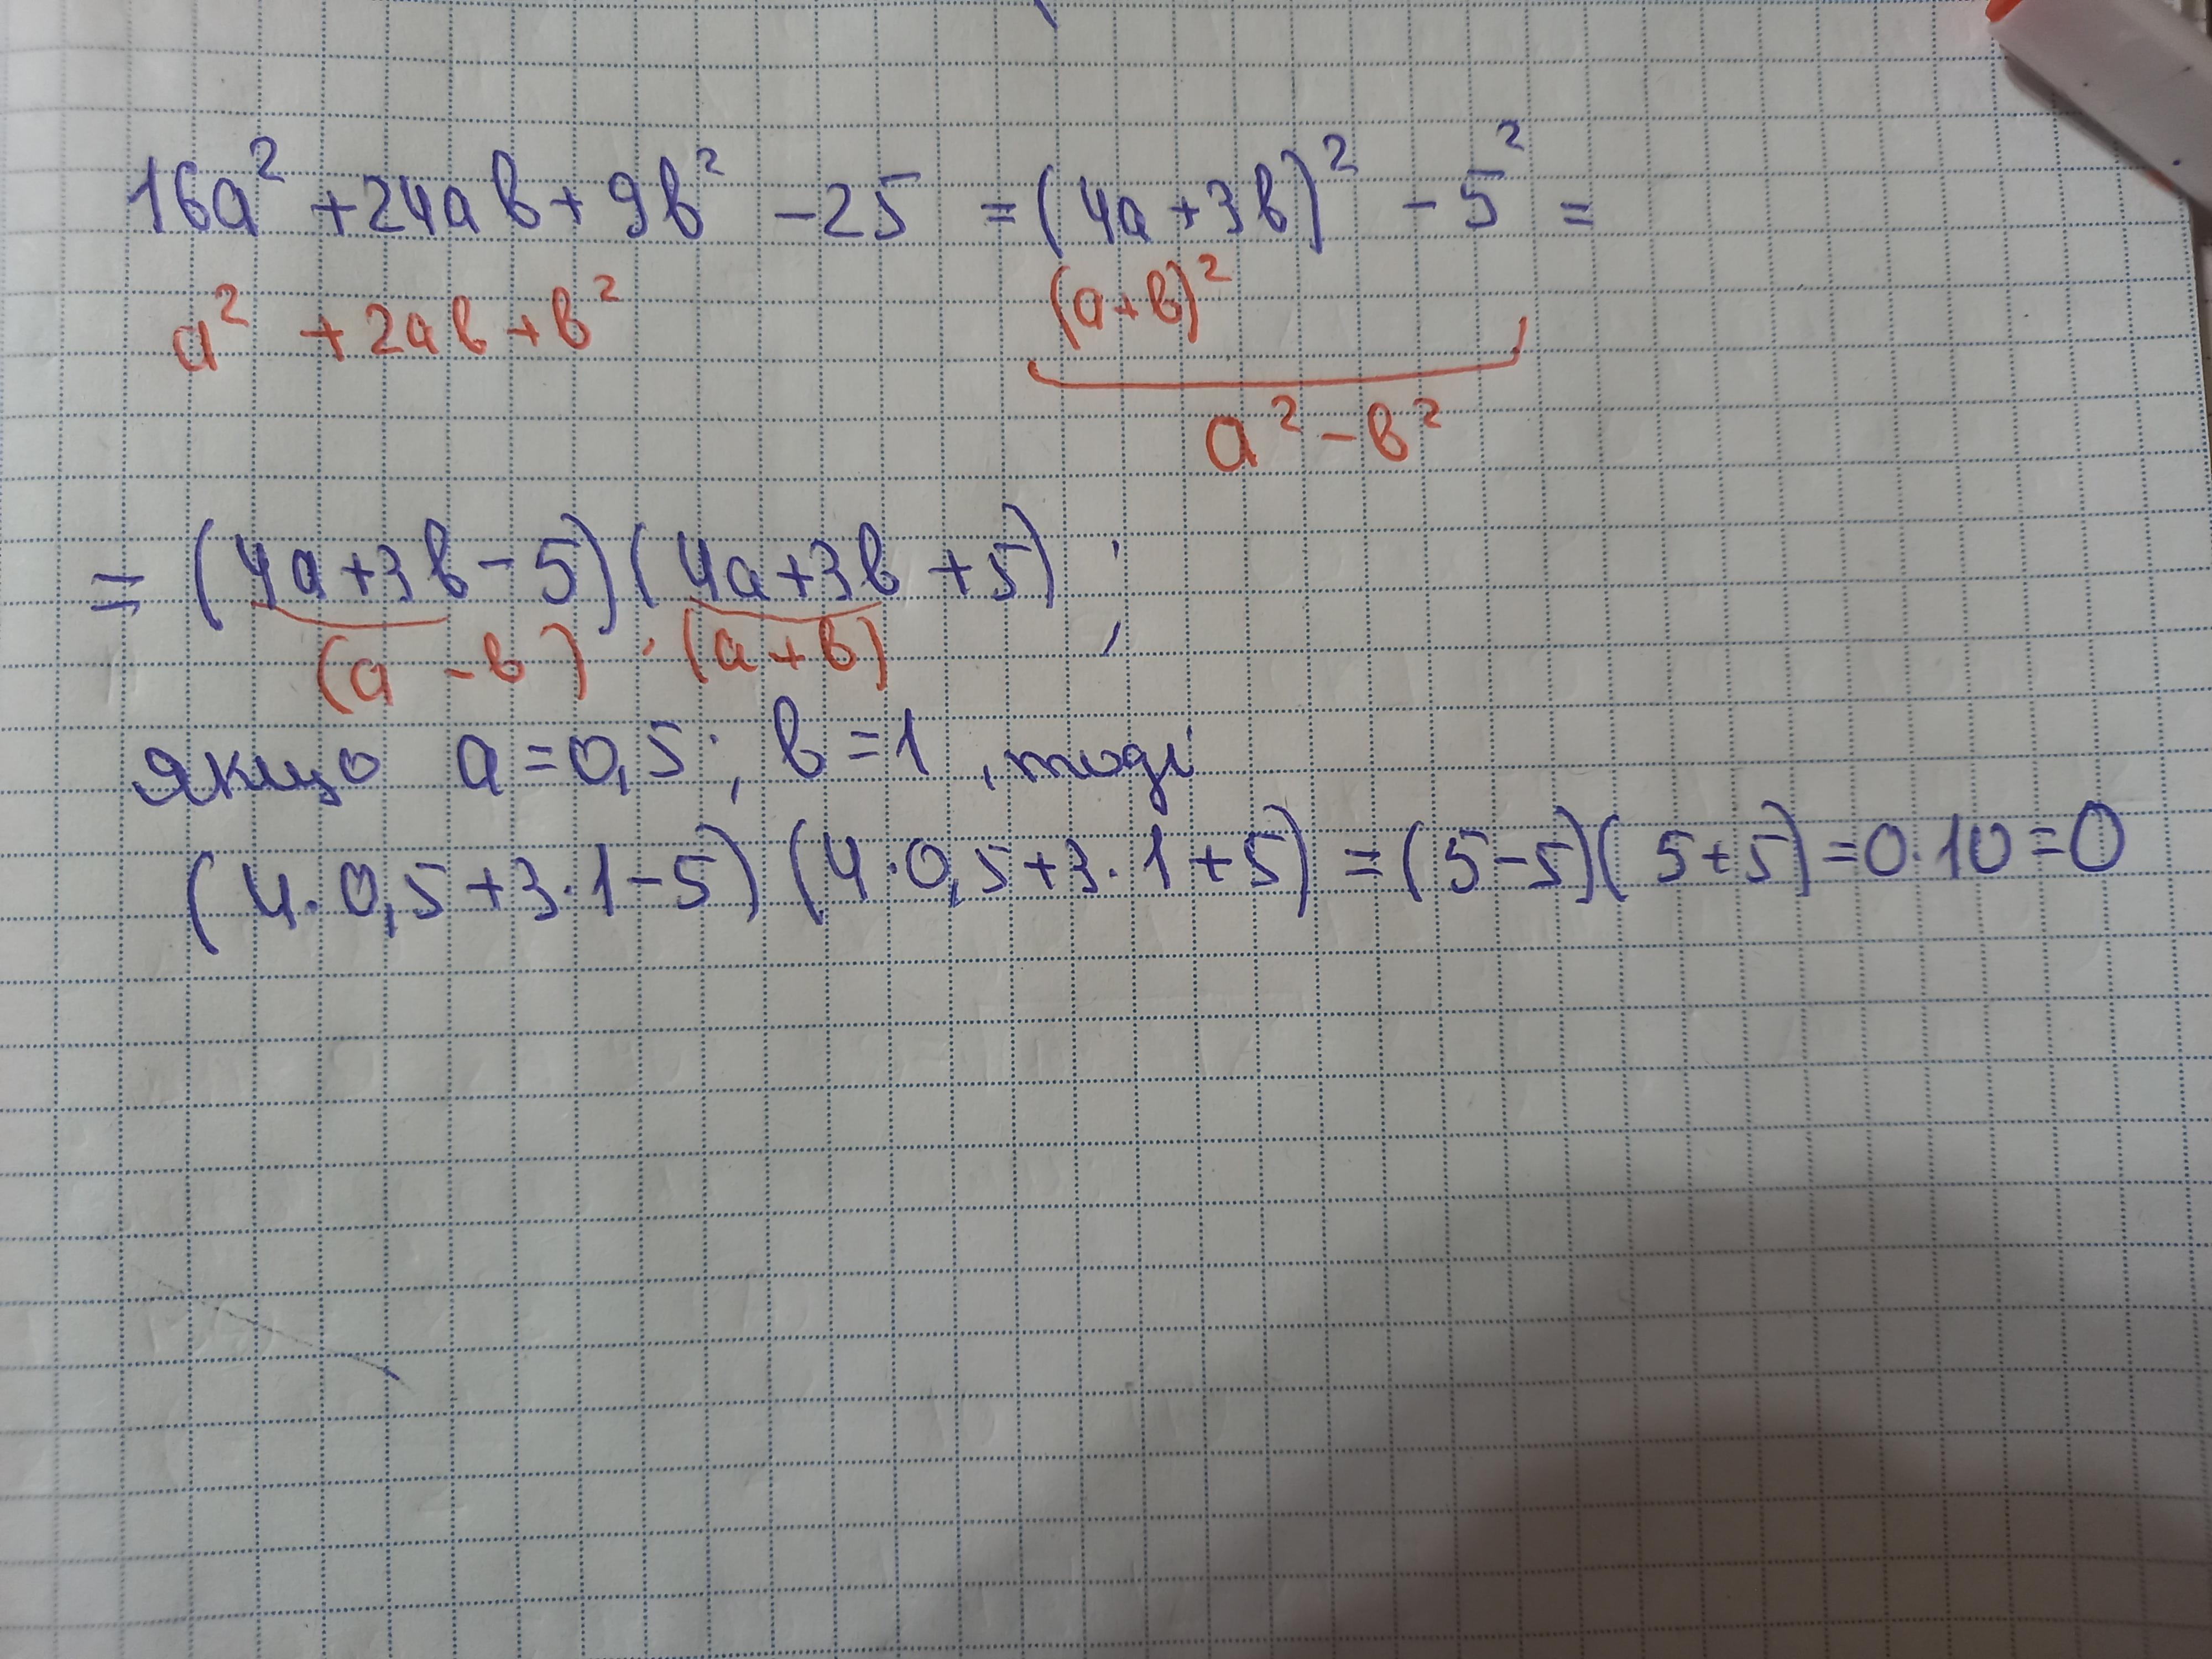 16a² + 24ab + 9b² - 25 = (4a + 3b)² - 5² =
a² + 2ab + b² (a+b)²
a² - b²
= (4a + 3b - 5)(4a + 3b + 5);
(a - b) · (a + b)
якщо a = 0,5; b = 1, тоді
(4 · 0,5 + 3 · 1 - 5)(4 · 0,5 + 3 · 1 + 5) = (5 - 5)(5 + 5) = 0 · 10 = 0